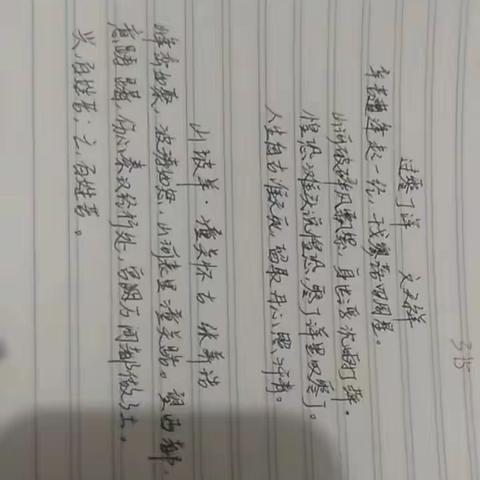 过零丁洋 文天祥
辛苦遭逢起一经,干戈寥落四周星。
山河破碎风飘絮,身世浮沉雨打萍。
惶恐滩头说惶恐,零丁洋里叹零丁。
人生自古谁无死,留取丹心照汗青。
山坡羊·潼关怀古 张养浩
峰峦如聚,波涛如怒,山河表里潼关路。望西都,
意踌躇,伤心秦汉经行处,宫阙万间都做了土。
兴,百姓苦;亡,百姓苦。